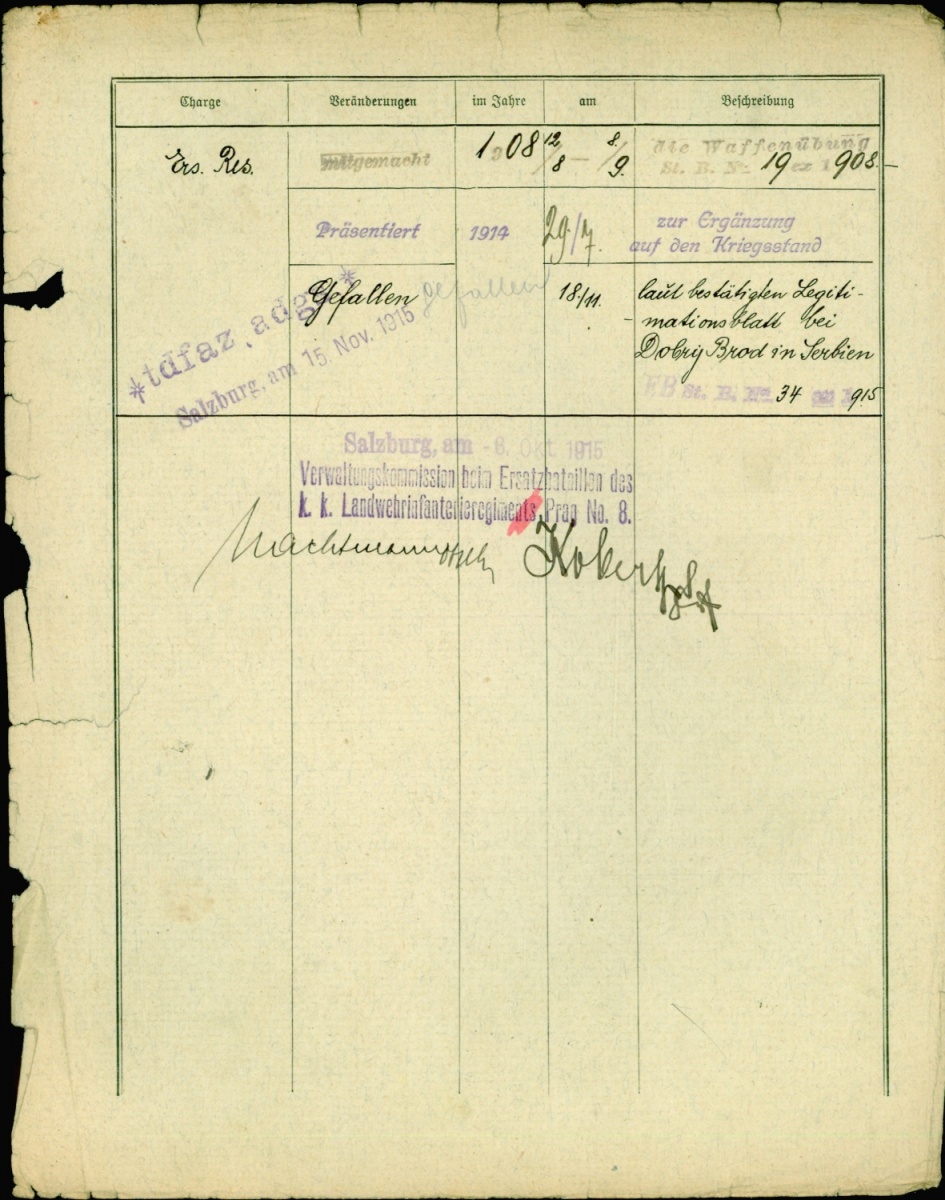 Charge Veränderungen im Jahre am Beschreibung
Ers. Res. mitgemacht 1908 12/8 — 8./9. die Waffenübung
St. B. No 19 ex 1908.
Präsentiert 1914 29/7. zur Ergänzung
auf den Kriegsstand
Gefallen gefallen 18./11. laut bestätigten Legiti-
mationsblatt bei
Dobry Brod in Serbien
EB St. B. No 34 ex 1915
Salzburg, am 15. Nov. 1915
Salzburg, am -8. Okt 1915
Verwaltungskommission beim Ersatzbataillon des
k. k. Landwehrinfanterieregiments Prag No. 8.